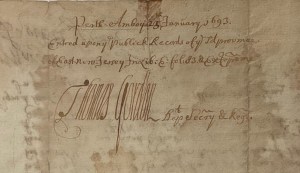 Perth Amboy 25 January 1693.
Entred upon ye Publick Records of ye Province
of East New Jersey in Lib C folio
Thomas Gordon Dpt Secry & Regr